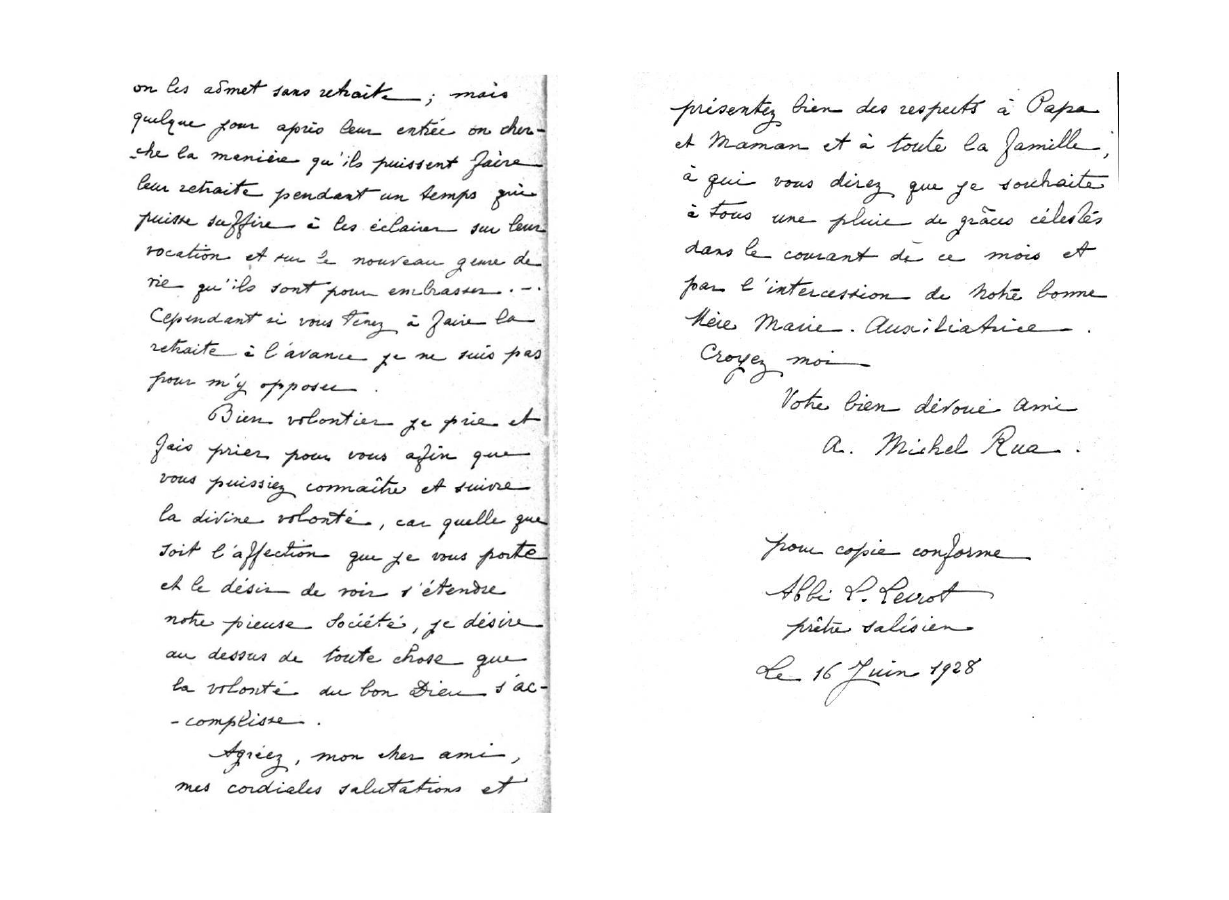 on les admet sans retraite ; mais
quelque jour après leur entrée on cher-
-che la manière qu'ils puissent faire
leur retraite pendant un temps qui
puisse suffire à les éclairer sur leur
vocation et sur le nouveau genre de
vie qu'ils sont pour embrasser . -.
Cependant si vous tenez à faire la
retraite à l'avance je ne suis pas
pour m'y opposer .
Bien volontier je prie et
fais prier pour vous afin que
vous puissiez connaître et suivre
la divine volonté, car quelle que
soit l'affection que je vous porte
et le désir de voir s'étendre
notre pieuse société, je désire
au dessus de toute chose que
la volonté du bon Dieu s'ac-
-complisse .
Agréez, mon cher ami,
mes cordiales salutations et
présentez bien des respects à Papa
et Maman et à toute la famille ;
à qui vous direz que je souhaite
à tous une pluie de grâces célestes
dans le courant de ce mois et
par l'intercession de Notre bonne
Mère Marie . Auxiliatrice .
Croyez moi
Votre bien dévoué ami
a. Michel Rua .
pour copie conforme
Abbé L. Levrot
prêtre salésien
Le 16 Juin 1928